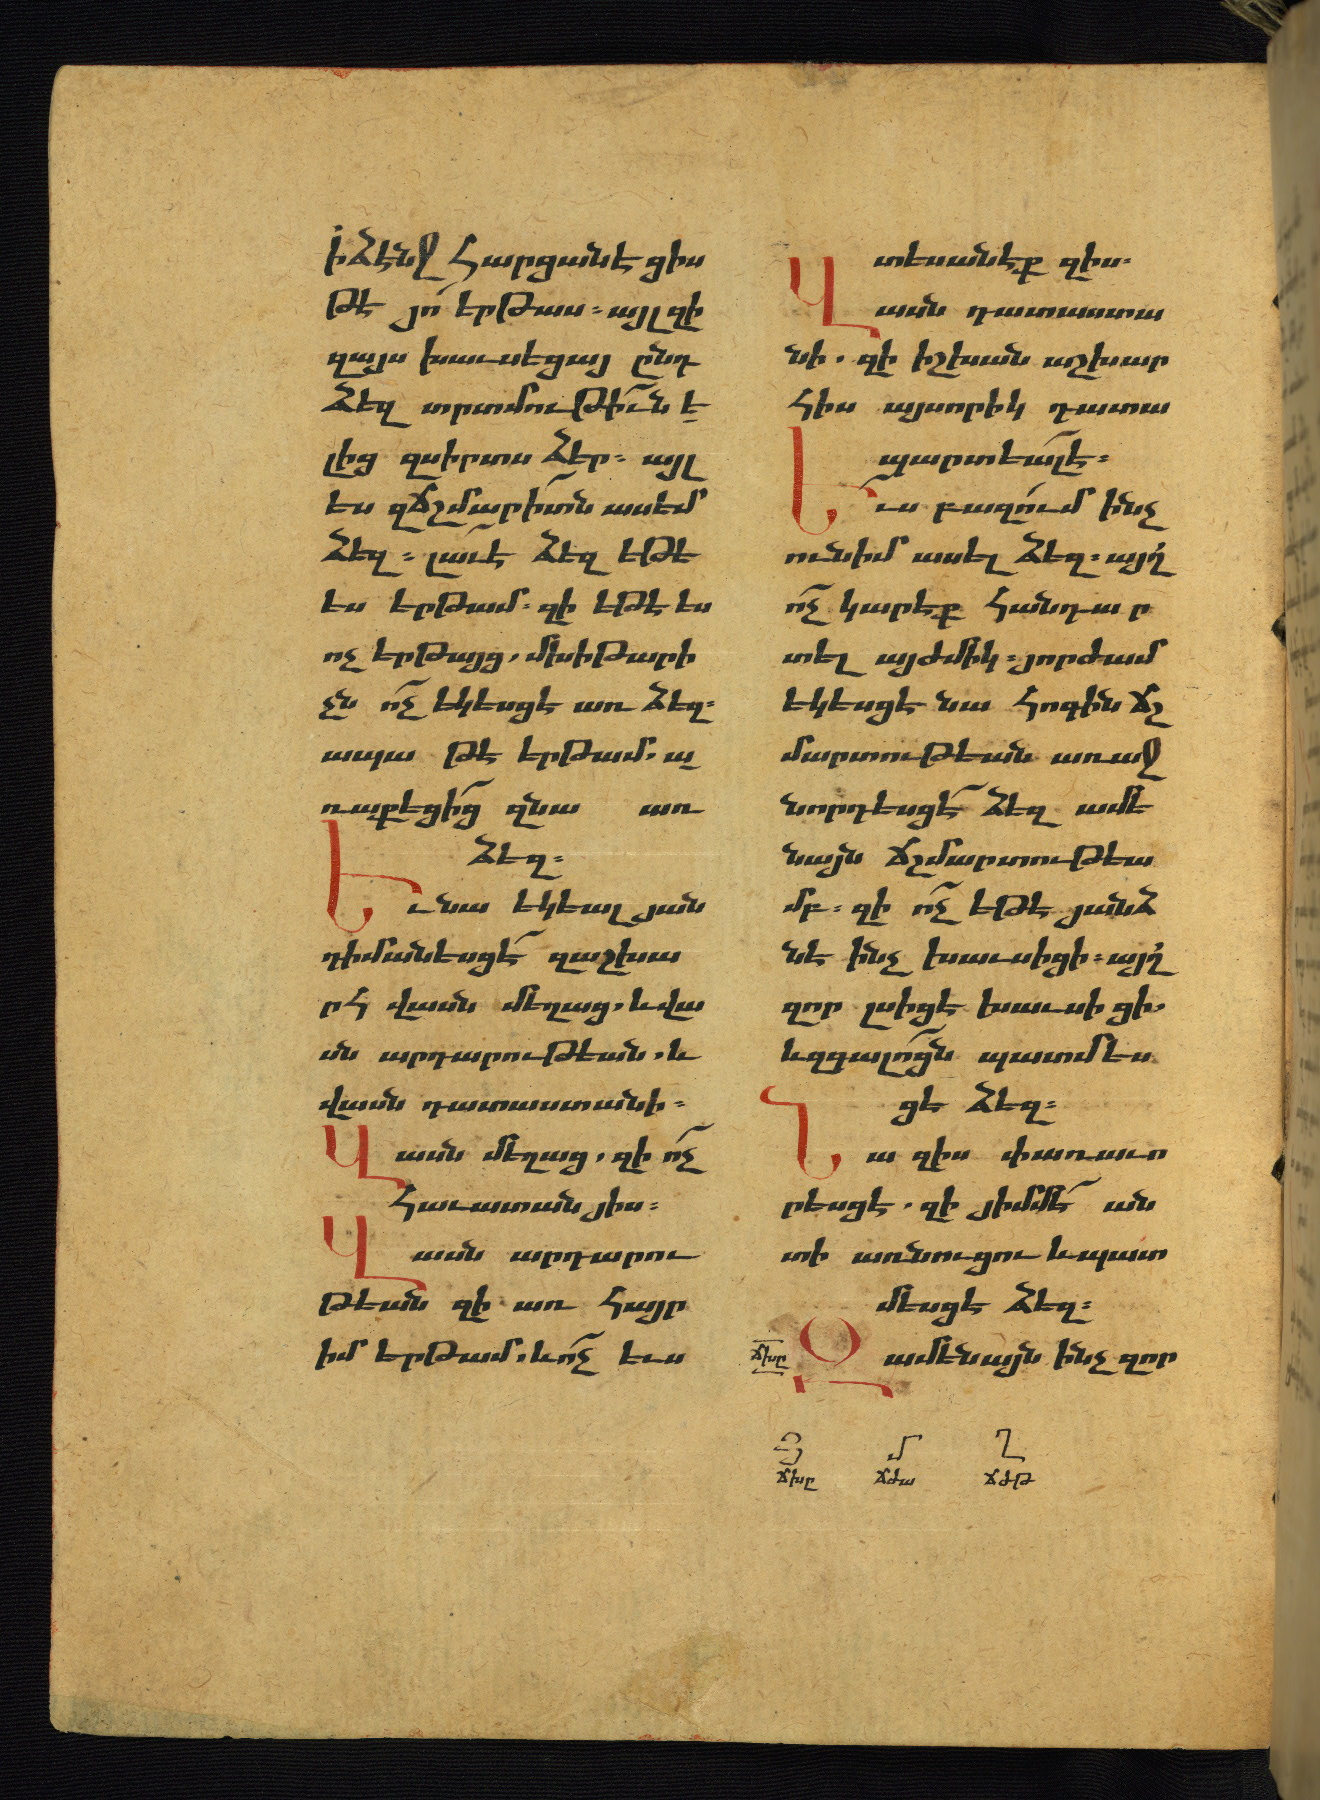 ի ձէնջ հարցանէ ցիս
թէ յո՞ երթաս ։ այլ զի
զայս խաւսեցայ ընդ
ձեզ տրտմութի՟ւն է
լից զսիրտս ձեր ։ այլ
ես զճշմարի՟տն ասեմ
ձեզ ։ լաւ է ձեզ եթէ
ես երթամ ։ զի եթէ ես
ոչ երթայց, մխիթարի
չն ո՟չ եկեսցէ առ ձեզ ։
ապա թէ երթամ, ա
ռաքեցի՟ց զնա առ
ձեզ ։
Եւ նա եկեալ յան
դիմանեսցէ՟ զաշխա
րհ վասն մեղաց, և վա
սն արդարութեան, և
վասն դատաստանի ։
Վասն մեղաց, զի ո՟չ
հաւատան յիս ։
Վասն արդարու
թեան զի առ հայր
իմ երթամ, և ո՟չ ևս
տեսանէք զիս ։
Վասն դատաստա
նի, զի իշխան աշխար
հիս այսորիկ դատա
պարտեա՟լ է ։
Եւս բազում ինչ
ունիմ ասել ձեզ ։ այղ
ո՟չ կարէք հանդուր
տել այժմիկ ։ յորժամ
եկեսցէ նա հոգին ճշ
մարտութեան առաջ
նորդեսցէ՟ ձեզ ամե
նայն ճշմարտութեա
մբ ։ զի ո՟չ եթէ յանձ
նէ ինչ խաւսիցի ։ այղ
զոր լսիցէ խաւսիցի,
և զգալո՟ցն պատմես
ցէ ձեզ ։
Նա զիս փառաւո
րեսցէ, զի յիմմէ՟ ան
տի առնուցու և պատ
մեսցէ ձեզ ։
ճխը Զամենայն ինչ զոր
Յ Մ Ղ
ճխը ճժա ճժթ